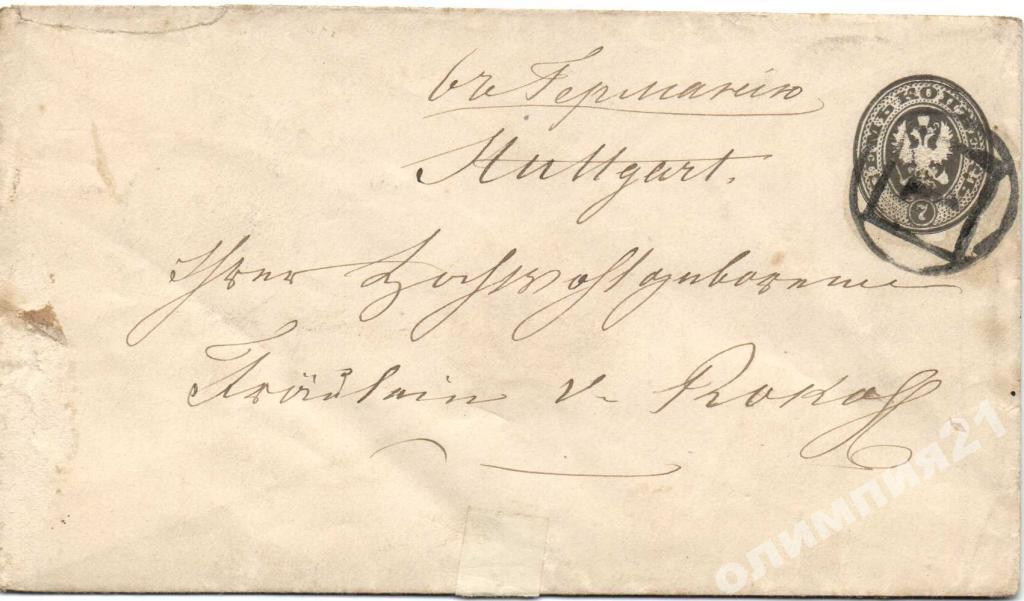 въ Германію
Stuttgart.
Ihrer Hochwohlgeboren
Fräulein v. Rokoff
СЕМЬ КОПѢЕКЪ
7
олимпия21